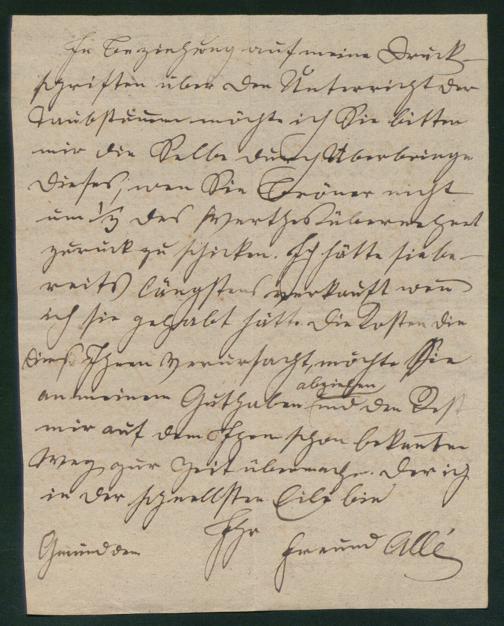 In Beziehung auf meine Druck-
schriften über den Unterricht der
Taubstummen möchte ich Sie bitten
mir die Selbe durch Überbringer
dieses, wen Sie nicht
um 1/3 des Werthes übernehmen
zurück zu schicken. Ich hätte sie be-
reits längstens verkauft wen
ich sie gehabt hätte. Die Kosten die
dies Ihnen verursacht, möchte Sie
an meinem Guthaben abziehen und den Rest
mir auf dem Ihnen schon bekannten
Weg zur Zeit übermachen. Der ich
in der schnellsten Eile bin
Ihr
Gmünd den Freund Allé